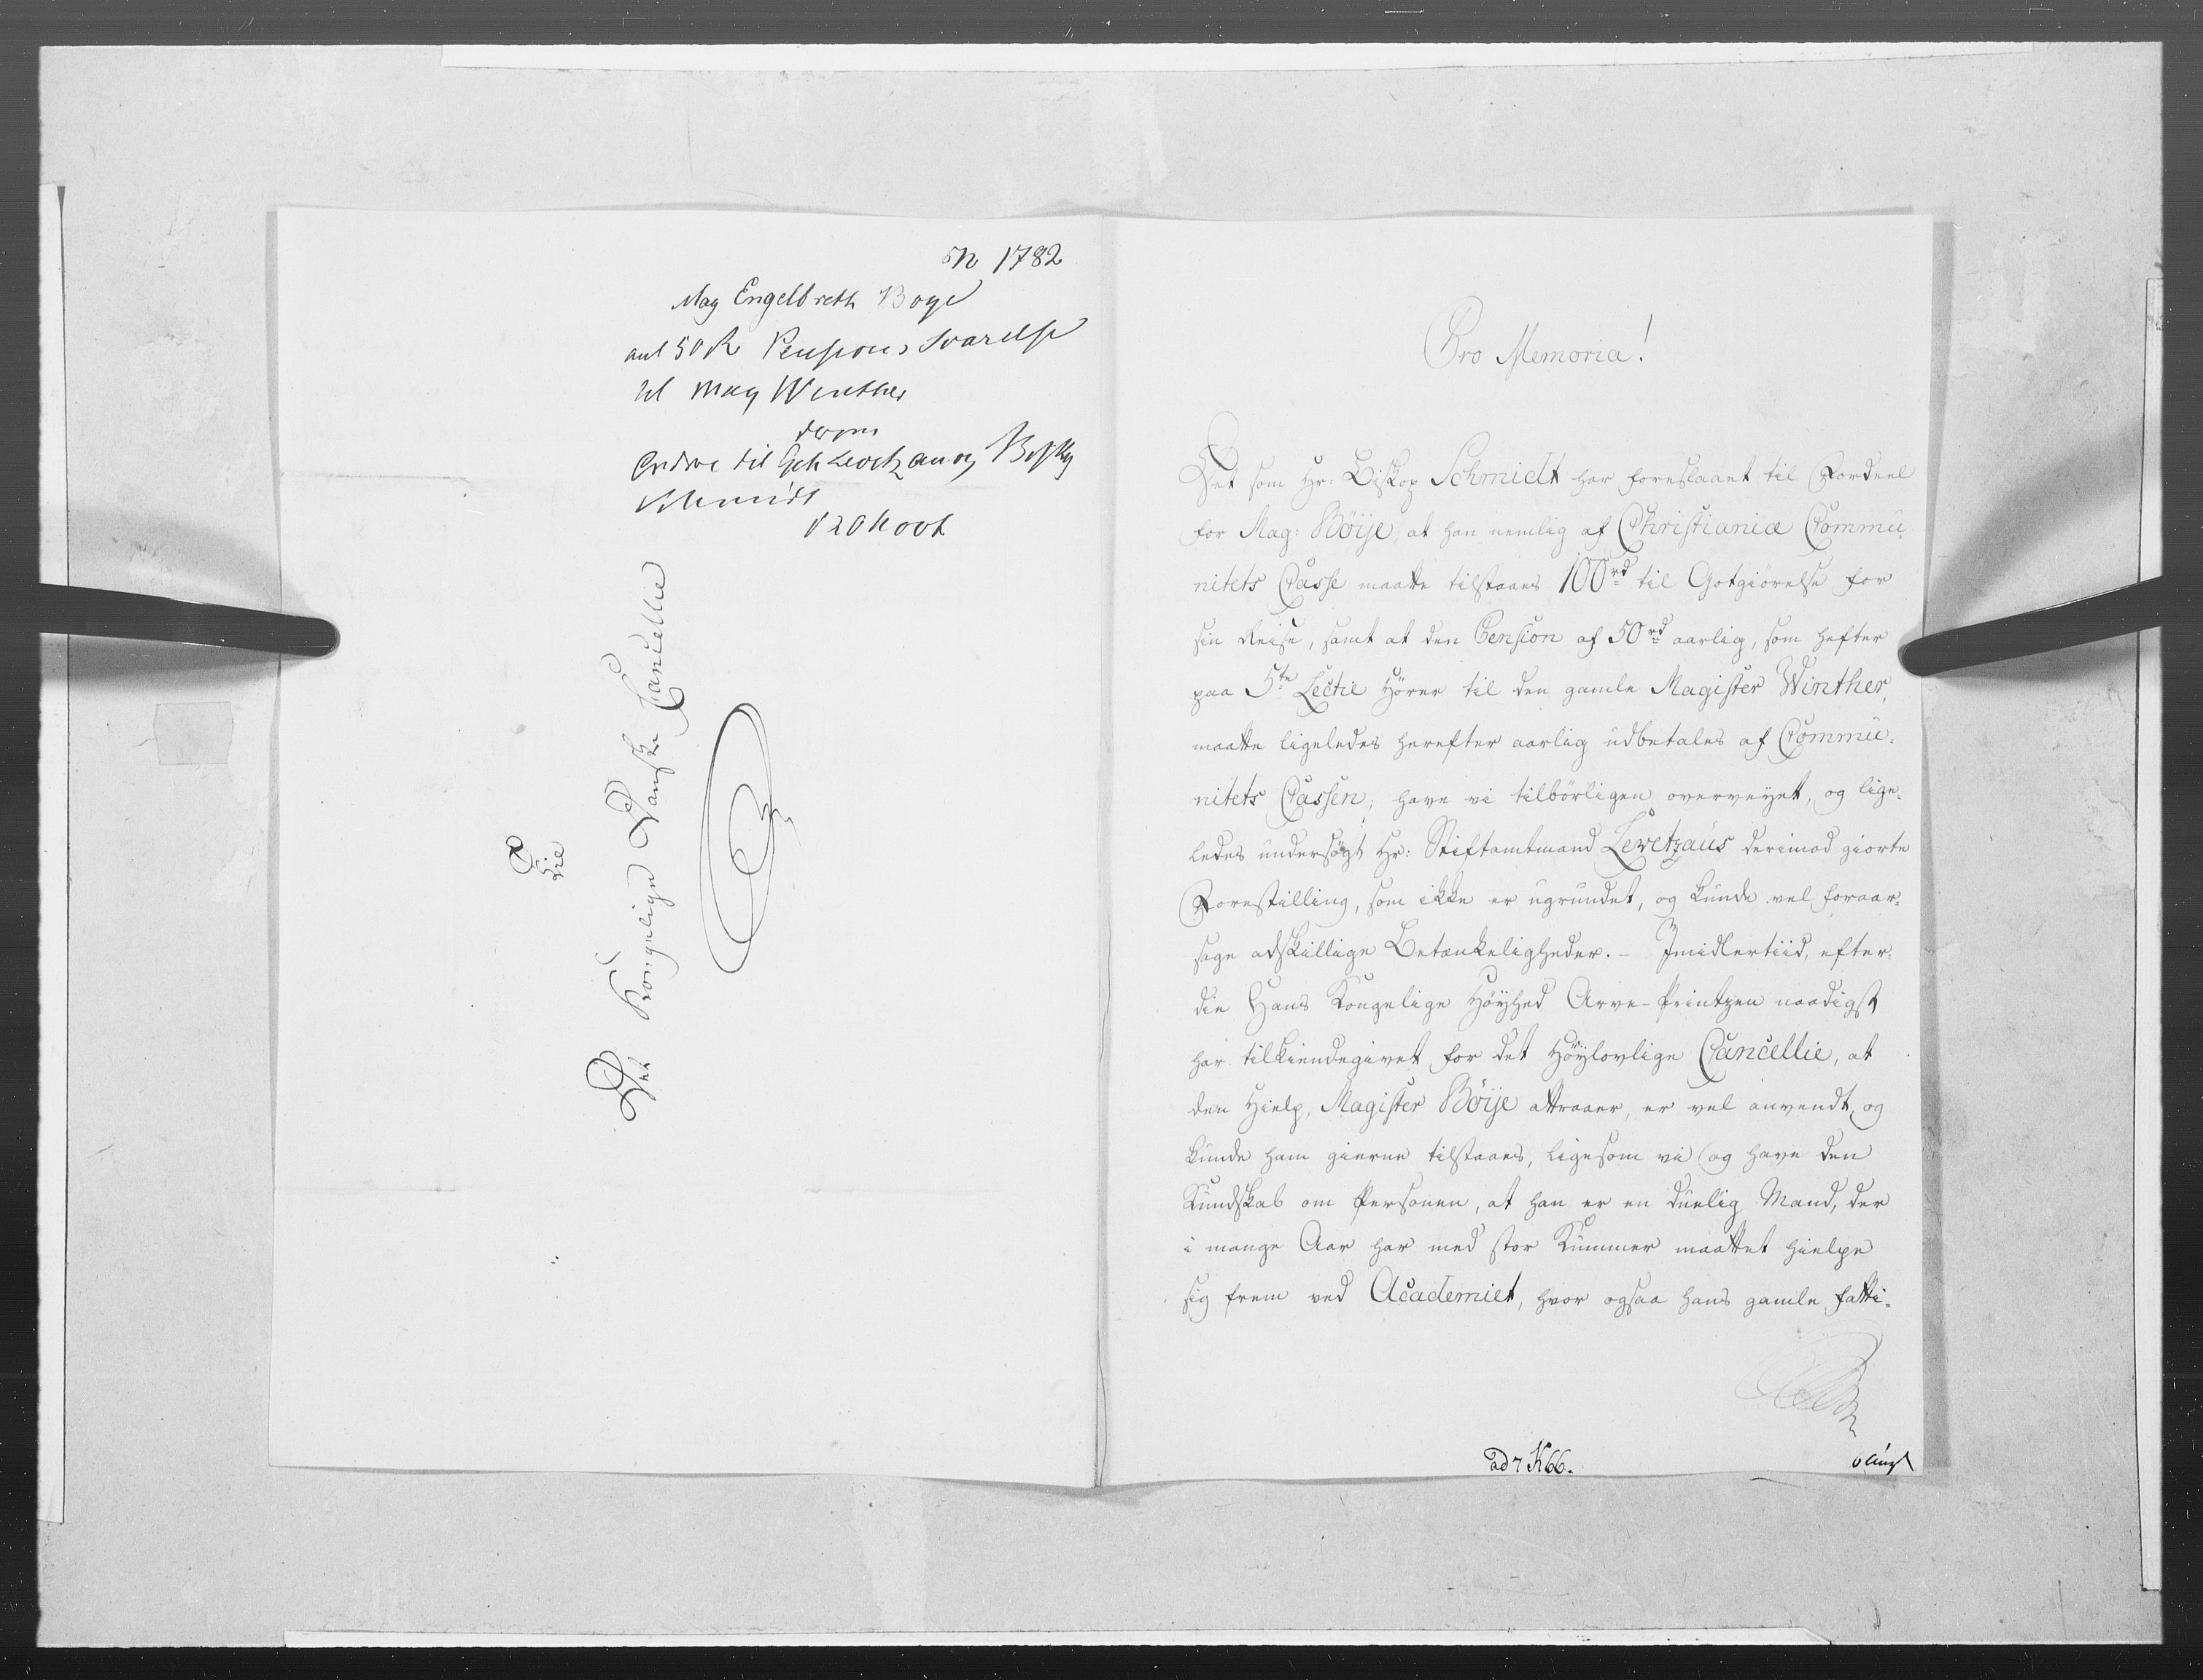 N 1782
Mag Engelbreth Boye
ant 50 R Pensions Svarelse
til Mag Winther
Ordre til Geh Levetzau og Biskop
Schmidt
Til
Det Kongelige Danske Cancellie
Pro Memoria!
Det som Hr: Biskop Schmidt har foreslaaet til Fordeel
for Mag: Böije, at han nemlig af Christianiæ Commu-
nitets Casse maatte tilstaaes 100 rd til Gotgiörelse for
sin Reise, samt at den Pension af 50 rd aarlig, som hefter
paa 5te Lectie Hörer til den gamle Magister Winther,
maatte ligeledes herefter aarlig udbetales af Commu-
nitets Cassen; have vi tilbörligen overveyet, og lige-
ledes undersögt Hr: Stiftamtmand Levetzaus derimod giorte
Forestilling, som ikke er ugrundet, og kunde vel foraar-
sage adskillige Betænkeligheder. - Imidlertiid, efter-
die Hans Kongelige Höyhed Arve-Printzen naadigst
har tilkiendegivet for det Höylovlige Cancellie, at
den Hielp, Magister Böije attraaer, er vel anvendt, og
kunde ham gierne tilstaaes, ligesom vi og have den
Kundskab om Personen, at han er en duelig Mand, der
i mange Aar har med stor Kummer maattet hielpe
sig frem ved Academiet, hvor ogsaa hans gamle fatti-
ad 7 K 66.